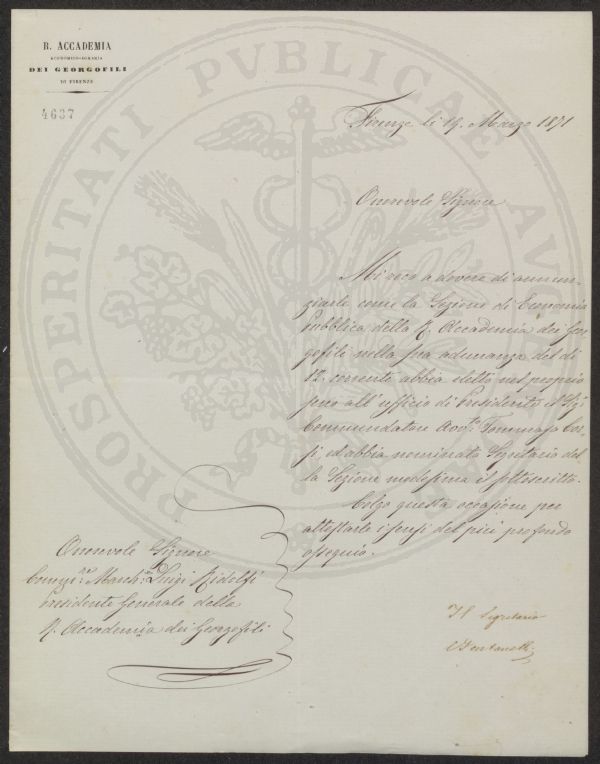 R. ACCADEMIA
ECONOMICO-AGRARIA
DEI GEORGOFILI
DI FIRENZE
4637
PROSPERITATI PVBLICAE AV
Firenze li 19. Marzo 1871
Onorevole Signore
Mi reco a dovere di annun-
ziarle come la Sezione di Economia
Pubblica della R. Accademia dei Geor-
gofili nella sua adunanza del dì
12. corrente abbia eletto nel proprio
seno all'ufficio di Presidente il Sig.
Commendatore Avv. Tommaso Cor-
si, ed abbia nominato Segretario del-
la Sezione medesima il sottoscritto.
Colgo questa occasione per
attestarle i sensi del più profondo
ossequio.
Onorevole Signore
March. Luigi Ridolfi
Presidente Generale della
R. Accademia dei Georgofili
Il Segretario